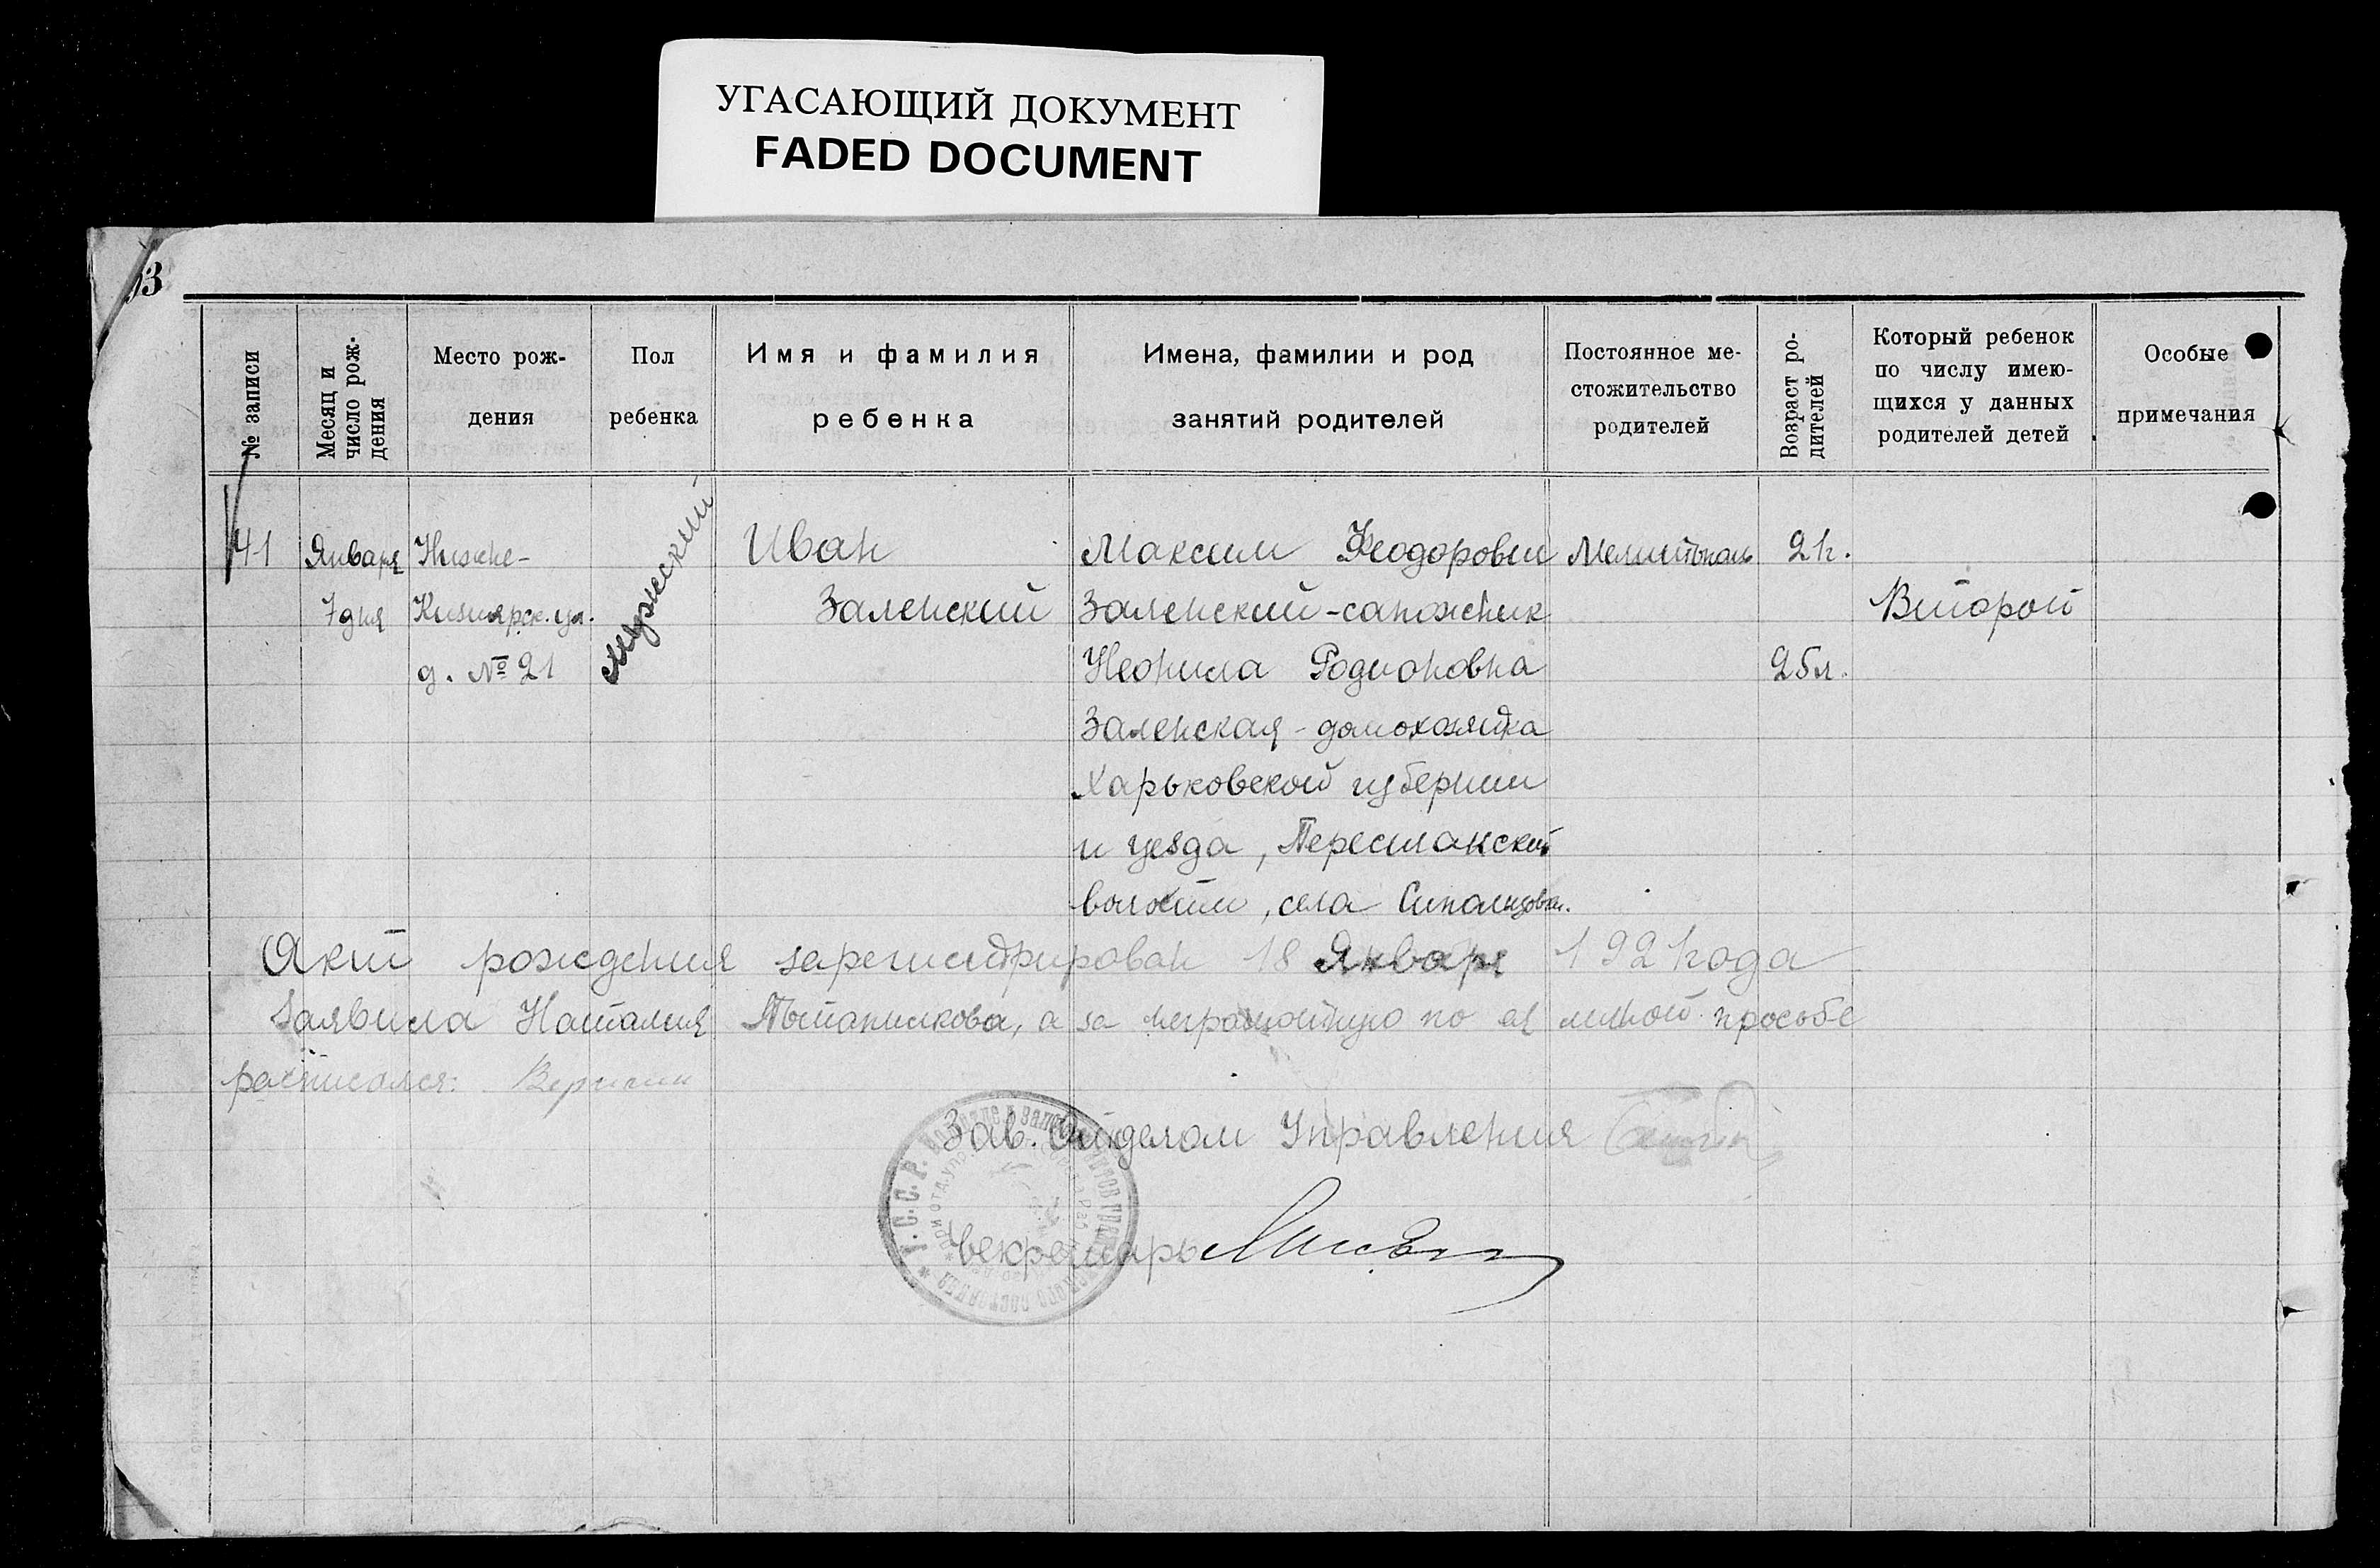 УГАСАЮЩИЙ ДОКУМЕНТ
FADED DOCUMENT
93
№ записи
Месяц и
число рож-
дения
Место рож-
дения
Пол
ребенка
Имя и фамилия
ребенка
Имена, фамилии и род
занятий родителей
Постоянное ме-
стожительство
родителей
Возраст ро-
дителей
Который ребенок
по числу имею-
щихся у данных
родителей детей
Особые
примечания
41
Января
7 дня
Нижне-
Кизиярск. ул.
д. № 21
мужеский
Иван
Заленский
Максим Феодорович
Заленский-сапожник
Неонила Родионовна
Заленская - домохозяйка
Харьковской губернии
и уезда, Пересичанской
волости, села
Мелитополь
21г.
25л.
Второй
Акт рождения зарегистрирован 18 Января 1921 года
Заявила Наталия а за неграмотную по ея личной просьбе
расписался:
Зав. Отделом Управления
Секретарь